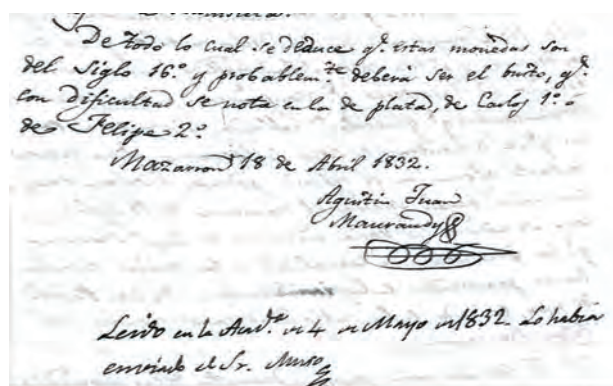 De todo lo cual se deduce q.e estas monedas son
del Siglo 16.º y probablem.te deberá ser el busto, q.e
con dificultad se nota en la de plata, de Carlos 1.º ó
de Felipe 2.º
Mazarron 18 de Abril 1832.
Agustin Juan
Maurandy
Leido en la Acad.a en 4 de Mayo de 1832. Lo habia
enviado el Sr. Muso